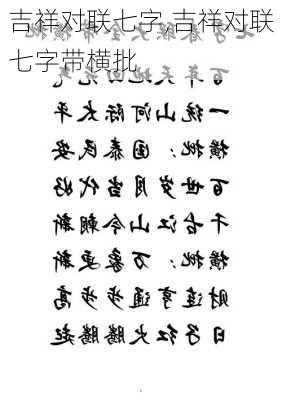 吉祥对联七字,吉祥对联
七字带横批
百年天地回元气
一统山河际太平
横批：国泰民安
百世岁月当代好
千古江山今朝新
横批：万象更新
财连亨通步步高
日子红火腾腾起